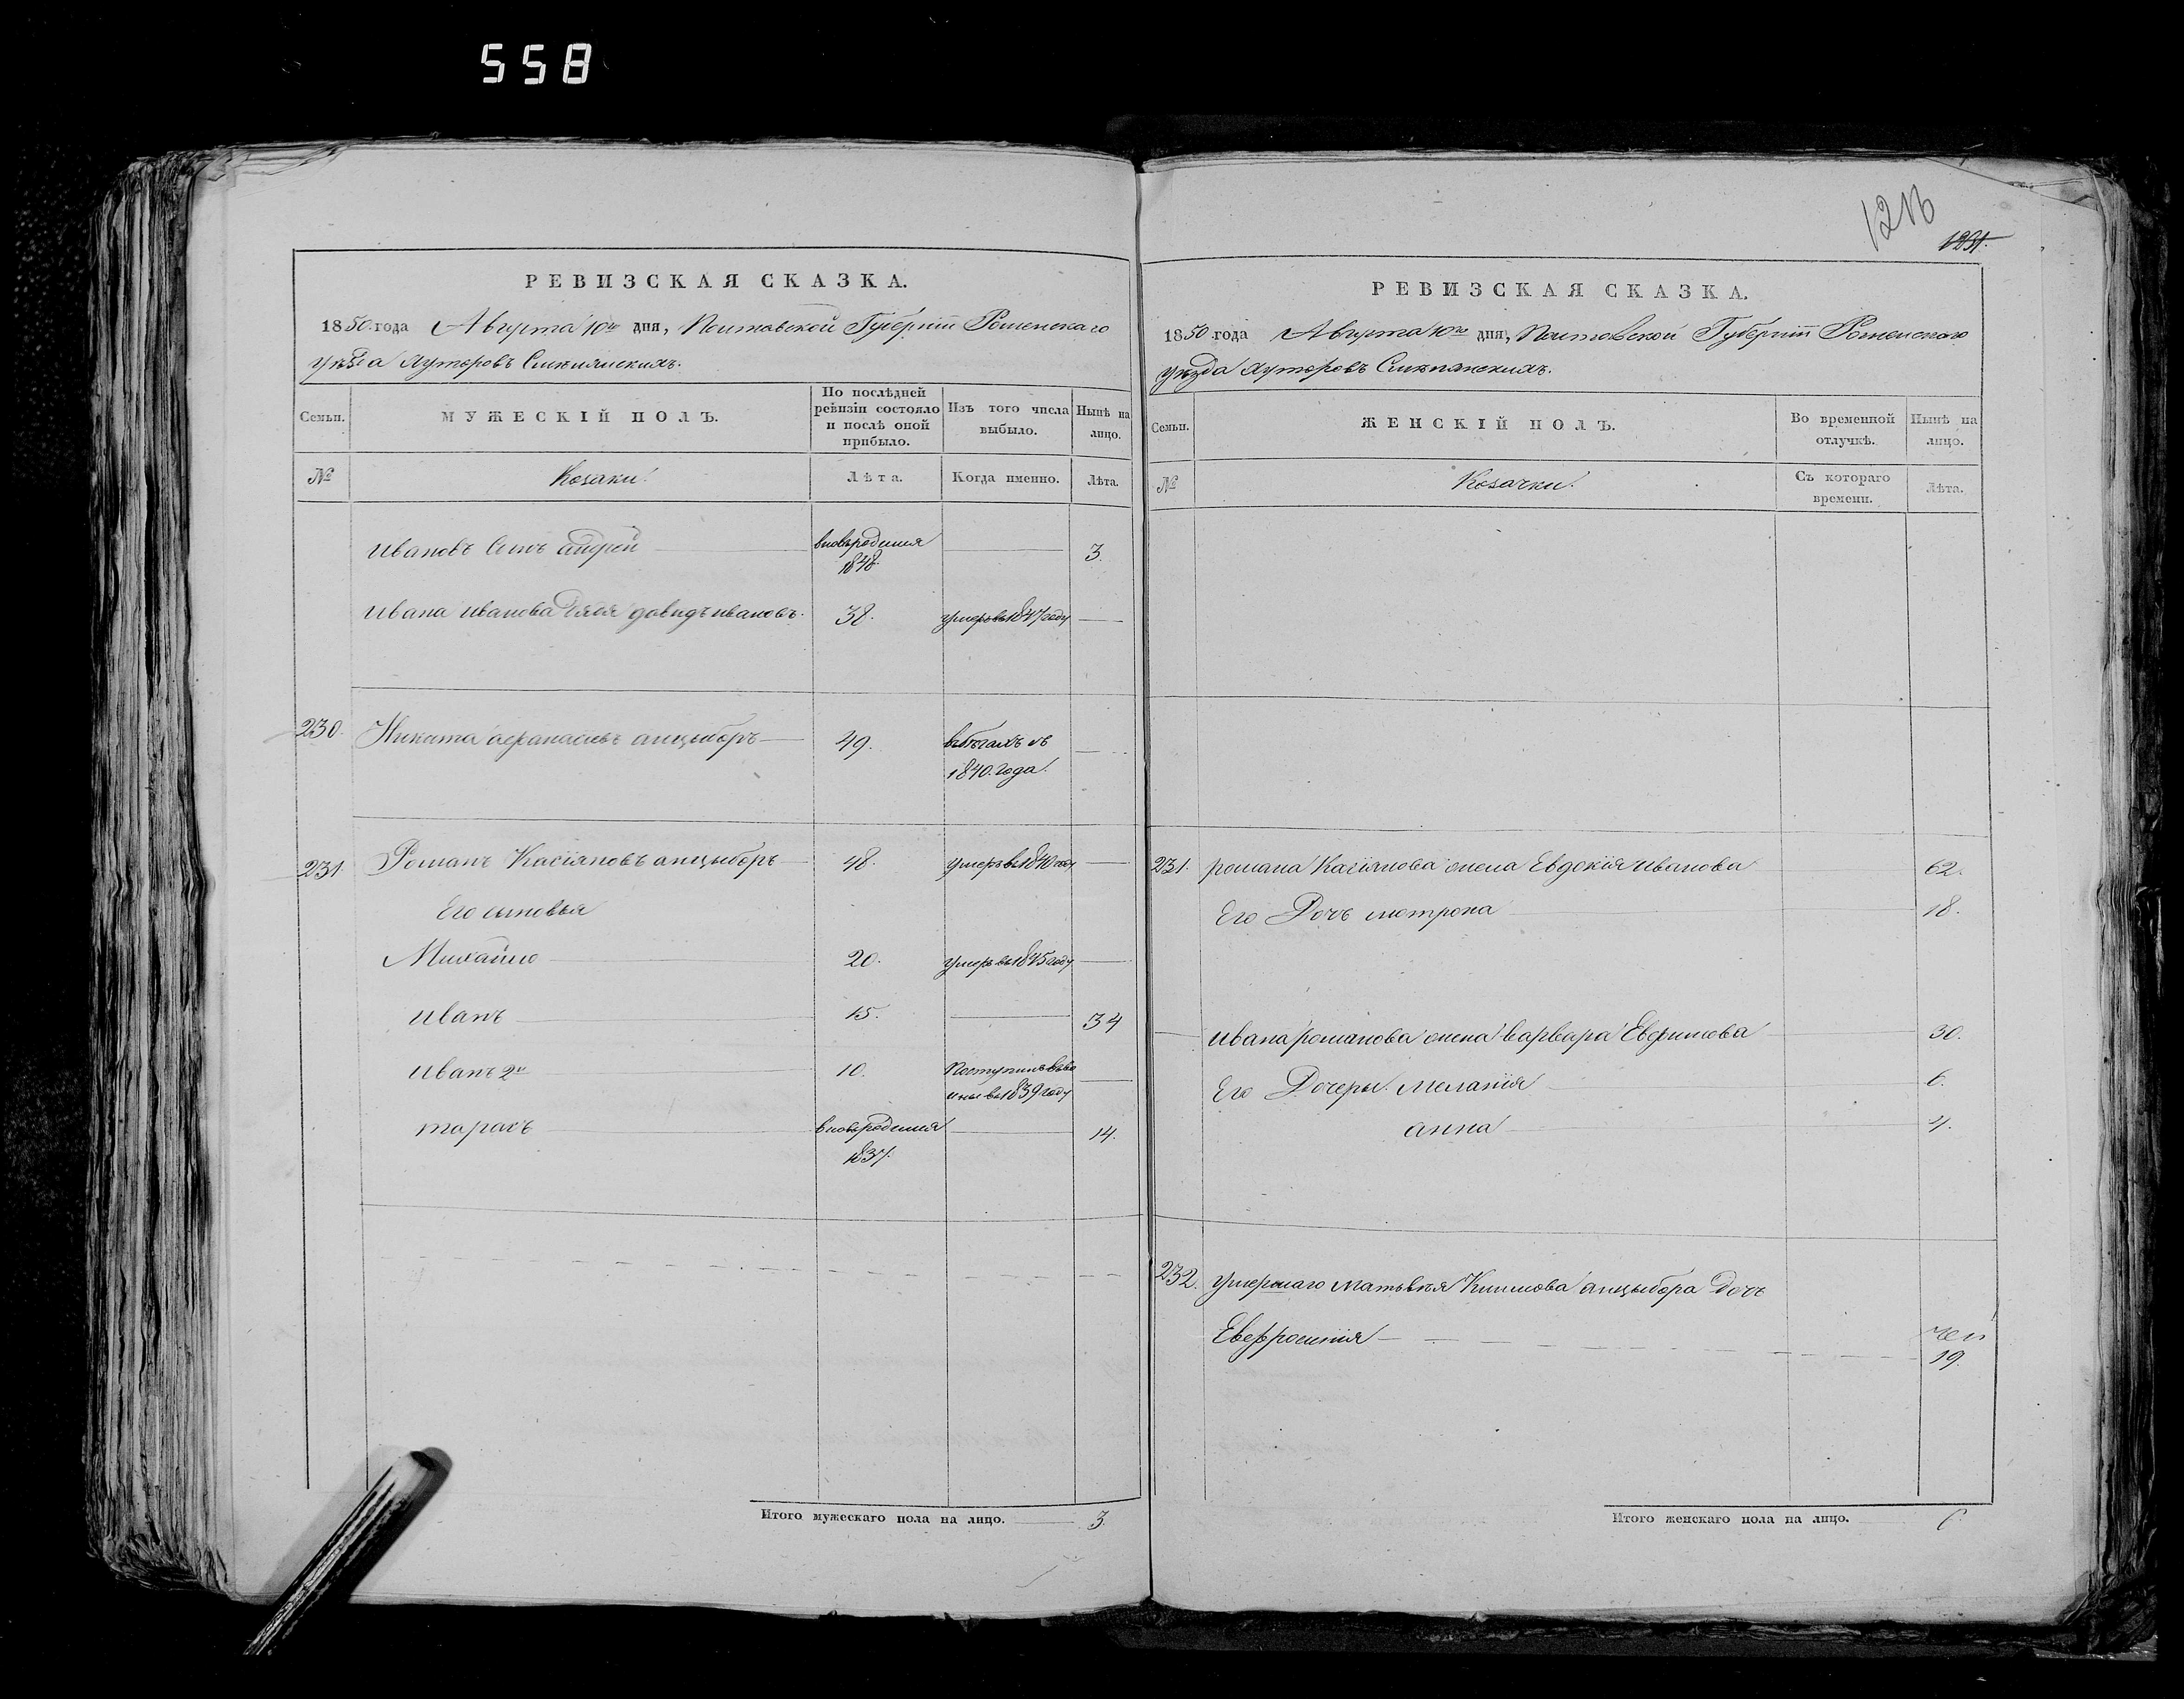 558
1216
1231.
РЕВИЗСКАЯ СКАЗКА.
1850 года Августа 10го дня, Полтавской Губерніи Роменскаго
уѣзда Хуторовъ Смѣлянскихъ.
Семьи.
МУЖЕСКІЙ ПОЛЪ.
По послѣдней ревизіи состояло и послѣ оной прибыло.
Изъ того числа выбыло.
Нынѣ на лицо.
№
Козаки.
Лѣта.
Когда именно.
Лѣта.
Ивановъ Сынъ андрей вновьродился 1848 3.
Ивана иванова дядя давидъ ивановъ. 38. умеръвъ1847году
230. Никита афанасіевъ анцыборъ 49. въбѣгахъ съ
1840. года.
231. Романъ Касіяновъ анцыборъ 48. умеръвъ1840году
Его сыновья
Михайло 20. умеръвъ1845году
иванъ 15. 34
иванъ 2й 10. Поступилъ
въ1839году
тарасъ вновьродился 14.
1837.
Итого мужескаго пола на лицо. 3
РЕВИЗСКАЯ СКАЗКА.
1850 года Августа 10го дня, Полтавской Губерніи Роменскаго
уѣзда Хуторовъ Смѣлянскихъ.
Семьи.
ЖЕНСКІЙ ПОЛЪ.
Во временной отлучкѣ.
Нынѣ на лицо.
№
Козачки.
Съ котораго времени.
Лѣта.
231. романа Касіянова жена Евдокія иванова 62.
Его Дочь мотрона 18.
ивана романова жена варвара Евфимова 30.
Его Дочеры. меланія 6.
анна 4.
232. умершаго матьвѣя Климова анцыбора дочь
Евфросинія
19.
Итого женскаго пола на лицо. 6